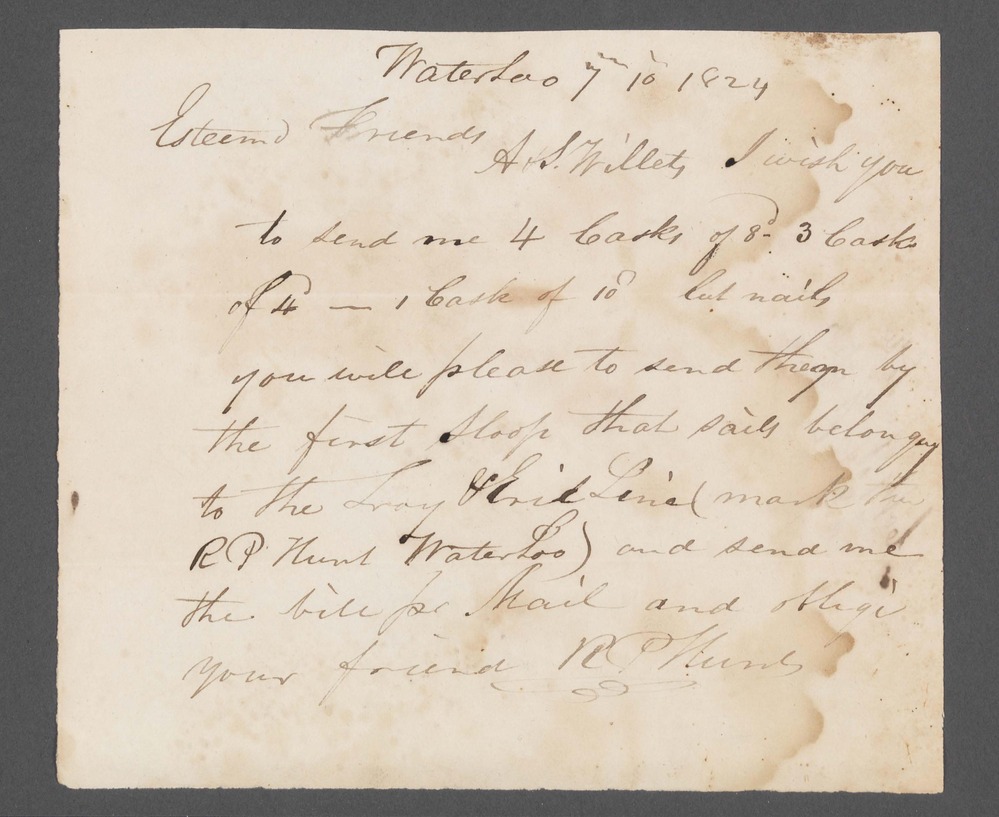 Waterloo 7mo 10 1824
Esteemd Friends
A & S. Willets I wish you
to send me 4 Casks of 8d 3 Casks
of 4d — 1 Cask of 10d Cut nails
you will please to send them by
the first sloop that sails belonging
to the Troy & Erie Line (mark
R P Hunt Waterloo) and send me
the bill pr Mail and oblige
your friend R P Hunt